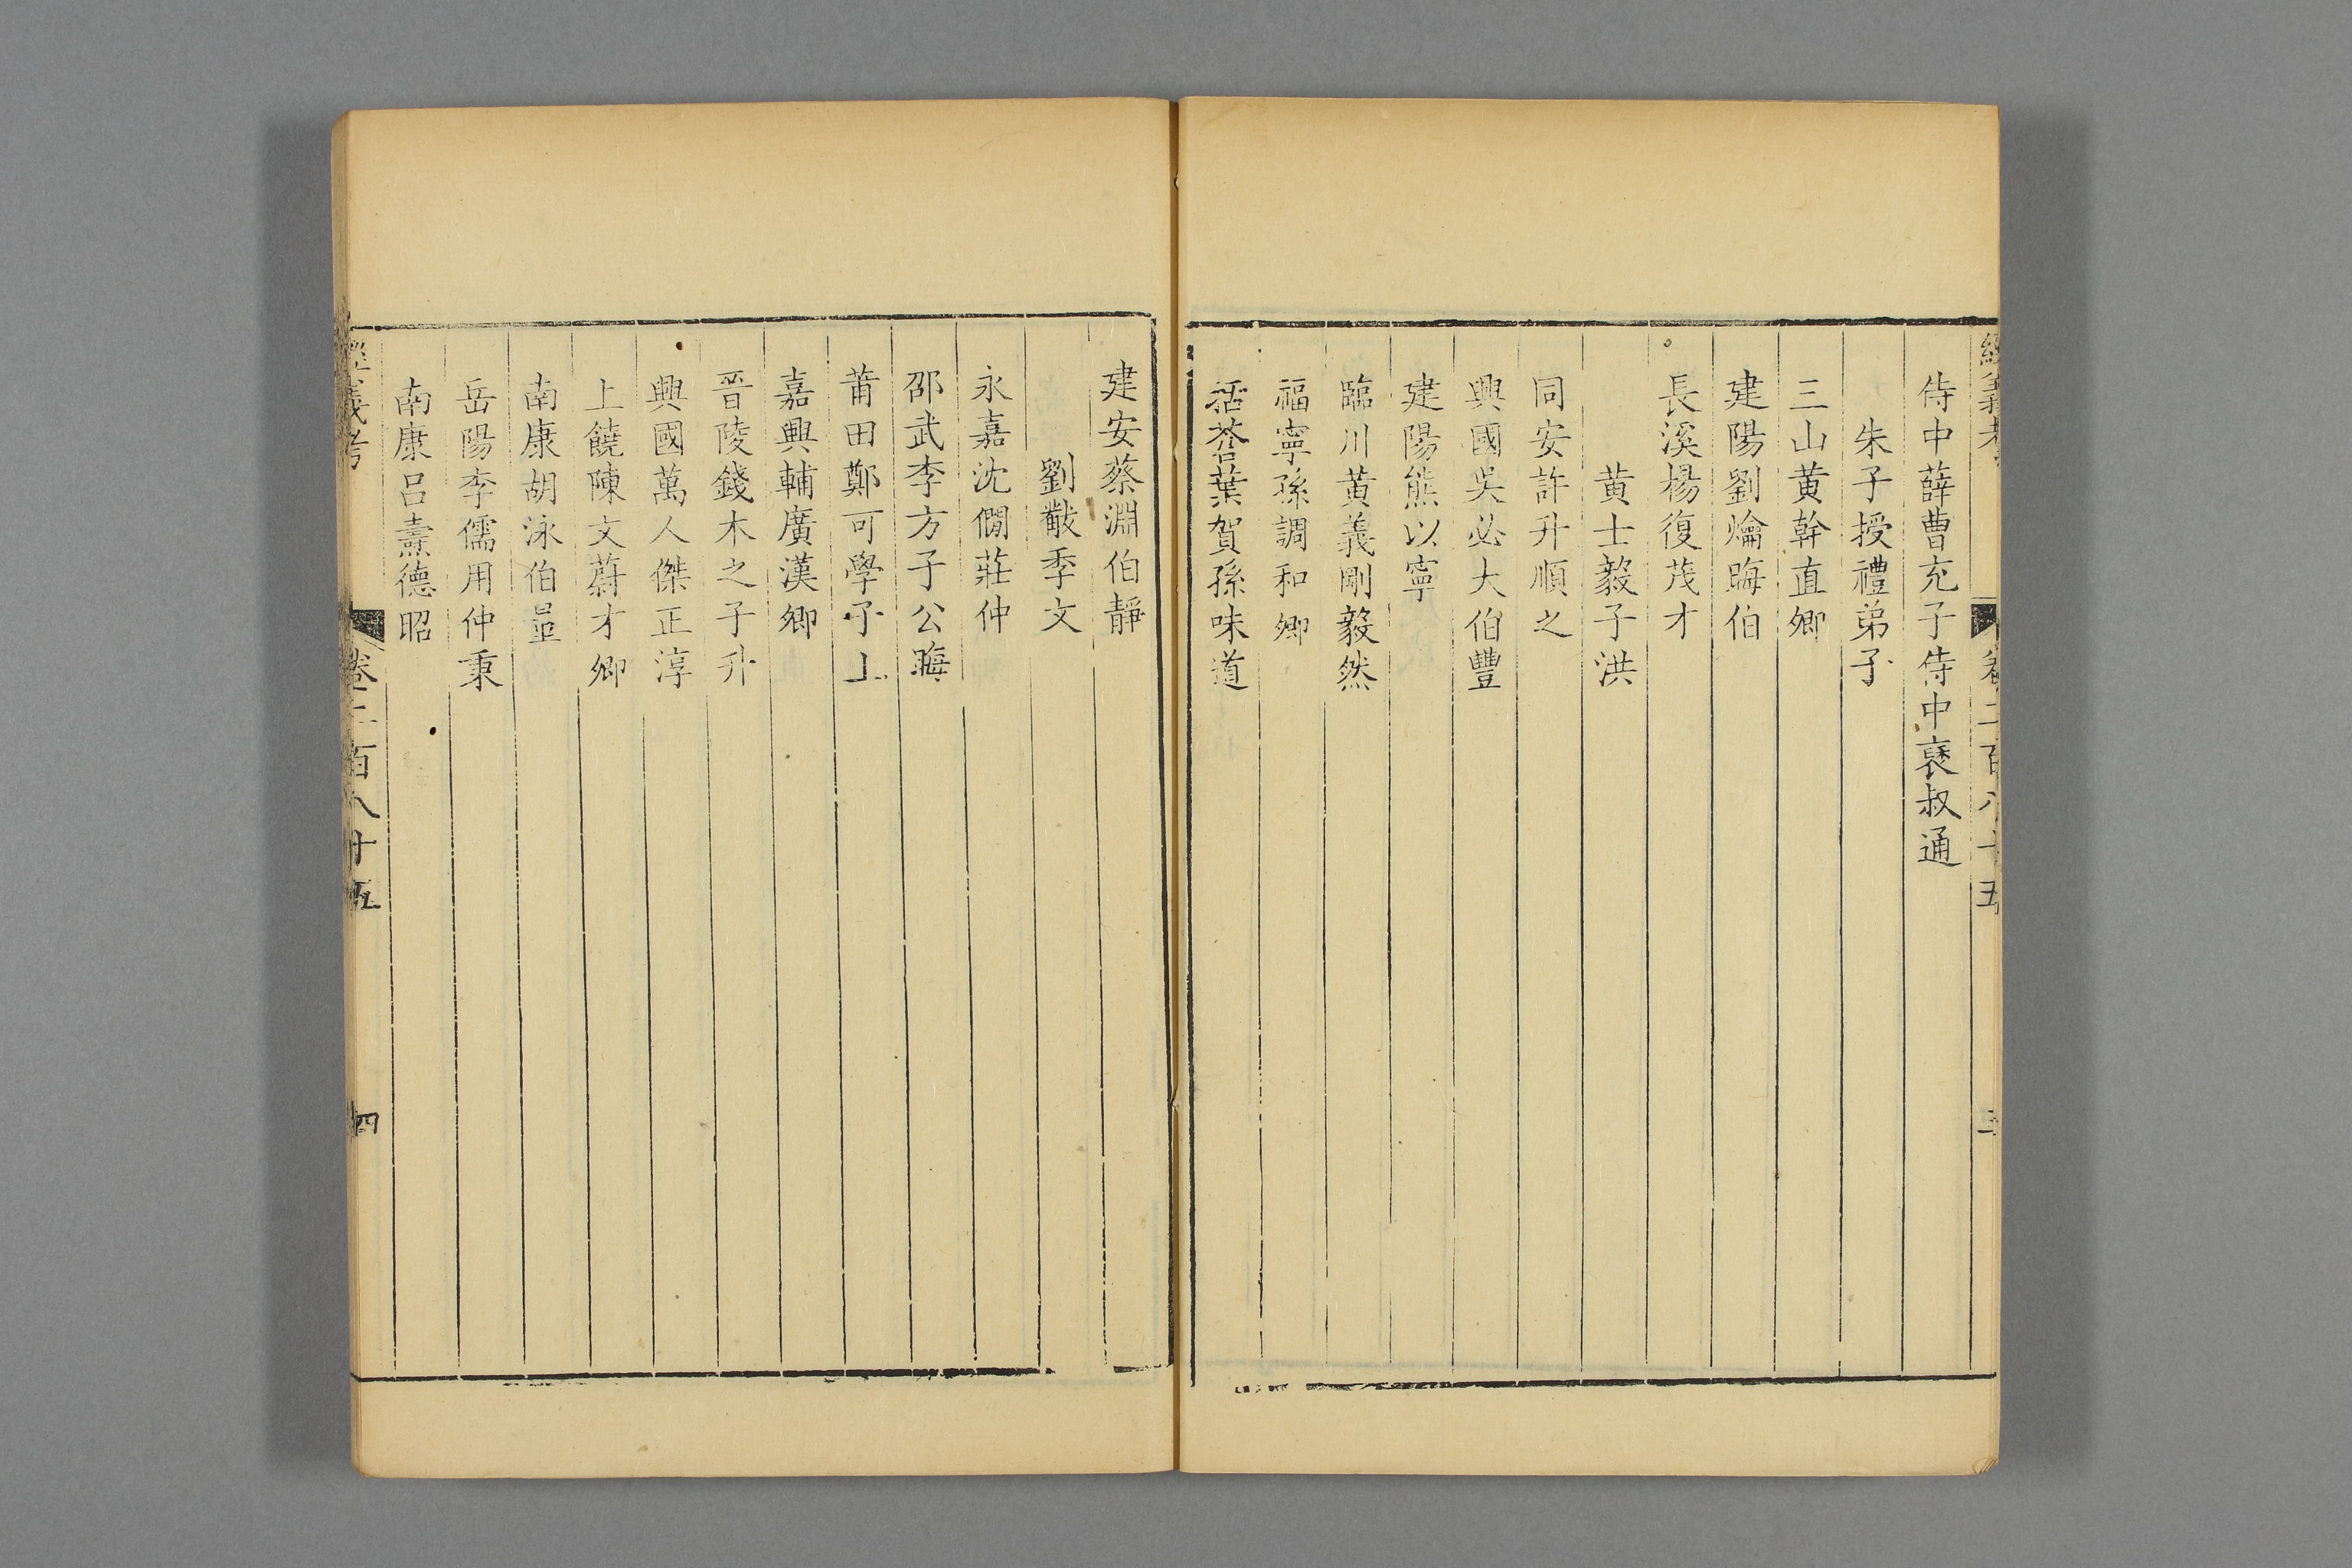 經義考 卷二百八十五 三
侍中薛曹充子侍中襃叔通
朱子授禮弟子
三山黄榦直卿
建陽劉爚晦伯
長溪楊復茂才
黄士毅子洪
同安許升順之
興國吳必大伯豐
建陽熊以寧
臨川黄義剛毅然
福寧孫調和卿
括蒼葉賀孫味道
建安蔡淵伯靜
劉黻季文
永嘉沈僩莊仲
邵武李方子公晦
莆田鄭可學子上
嘉興輔廣漢卿
晉陵錢木之子升
興國萬人傑正淳
上饒陳文蔚才卿
南康胡泳伯量
岳陽李儒用仲秉
南康吕燾德昭
經義考 卷二百八十五 四